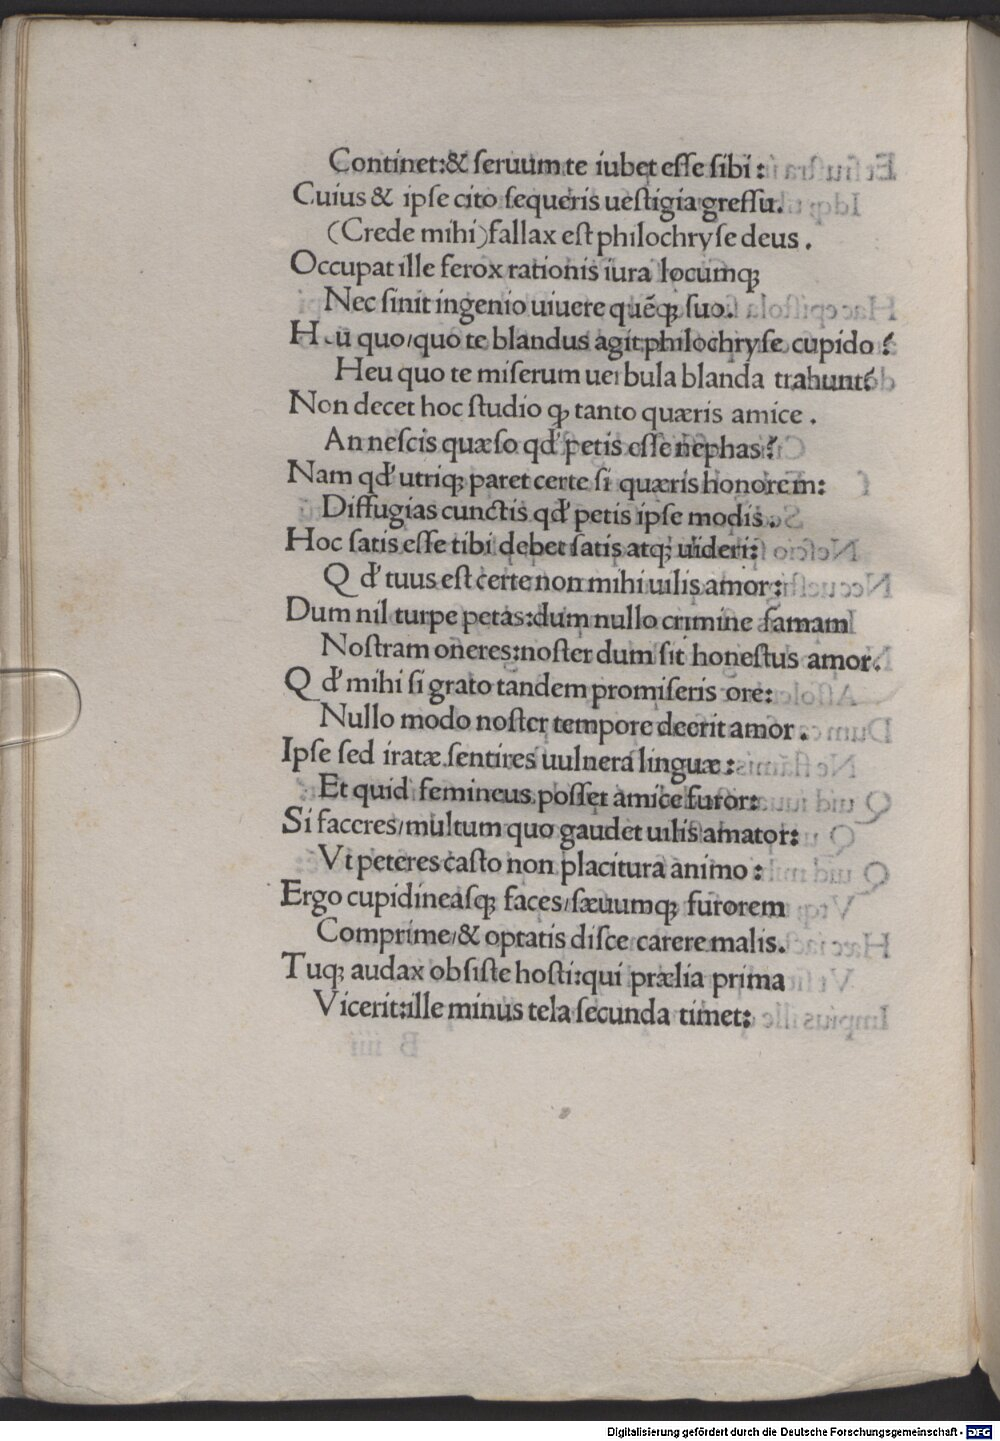 Continet:& ſeruum te iubet eſſe ſibi :
Cuius & ipſe cito ſequeris ueſtigia greſſu.
(Crede mihi) fallax eſt philochryſe deus .
Occupat ille ferox rationis iura locumq;
Nec ſinit ingenio uiuere quẽq; ſuo.
Heu quo/quo te blandus agit philochryſe cupido ?
Heu quo te miſerum uerbula blanda trahunt?
Non decet hoc ſtudio ꝙ tanto quæris amice .
An neſcis quæſo qď petis eſſe nephas?
Nam qď utriq; paret certe ſi quæris honorem:
Diffugias cunctis qď petis ipſe modis .
Hoc ſatis eſſe tibi debet ſatis atq; uideri:
Qď tuus eſt certe non mihi uilis amor:
Dum nil turpe petas:dum nullo crimine famam
Noſtram oneres:noſter dum ſit honeſtus amor.
Qď mihi ſi grato tandem promiſeris ore:
Nullo modo noſter tempore deerit amor .
Ipſe ſed iratæ ſentires uulnera linguæ :
Et quid femineus poſſet amice furor:
Si faceres/multum quo gaudet uilis amator:
Vt peteres caſto non placitura animo :
Ergo cupidineaſq; faces/ſæuumq; furorem
Comprime/& optatis diſce carere malis.
Tuq; audax obſiſte hoſti:qui prælia prima
Vicerit:ille minus tela ſecunda timet:
Digitalisierung gefördert durch die Deutsche Forschungsgemeinschaft - DFG